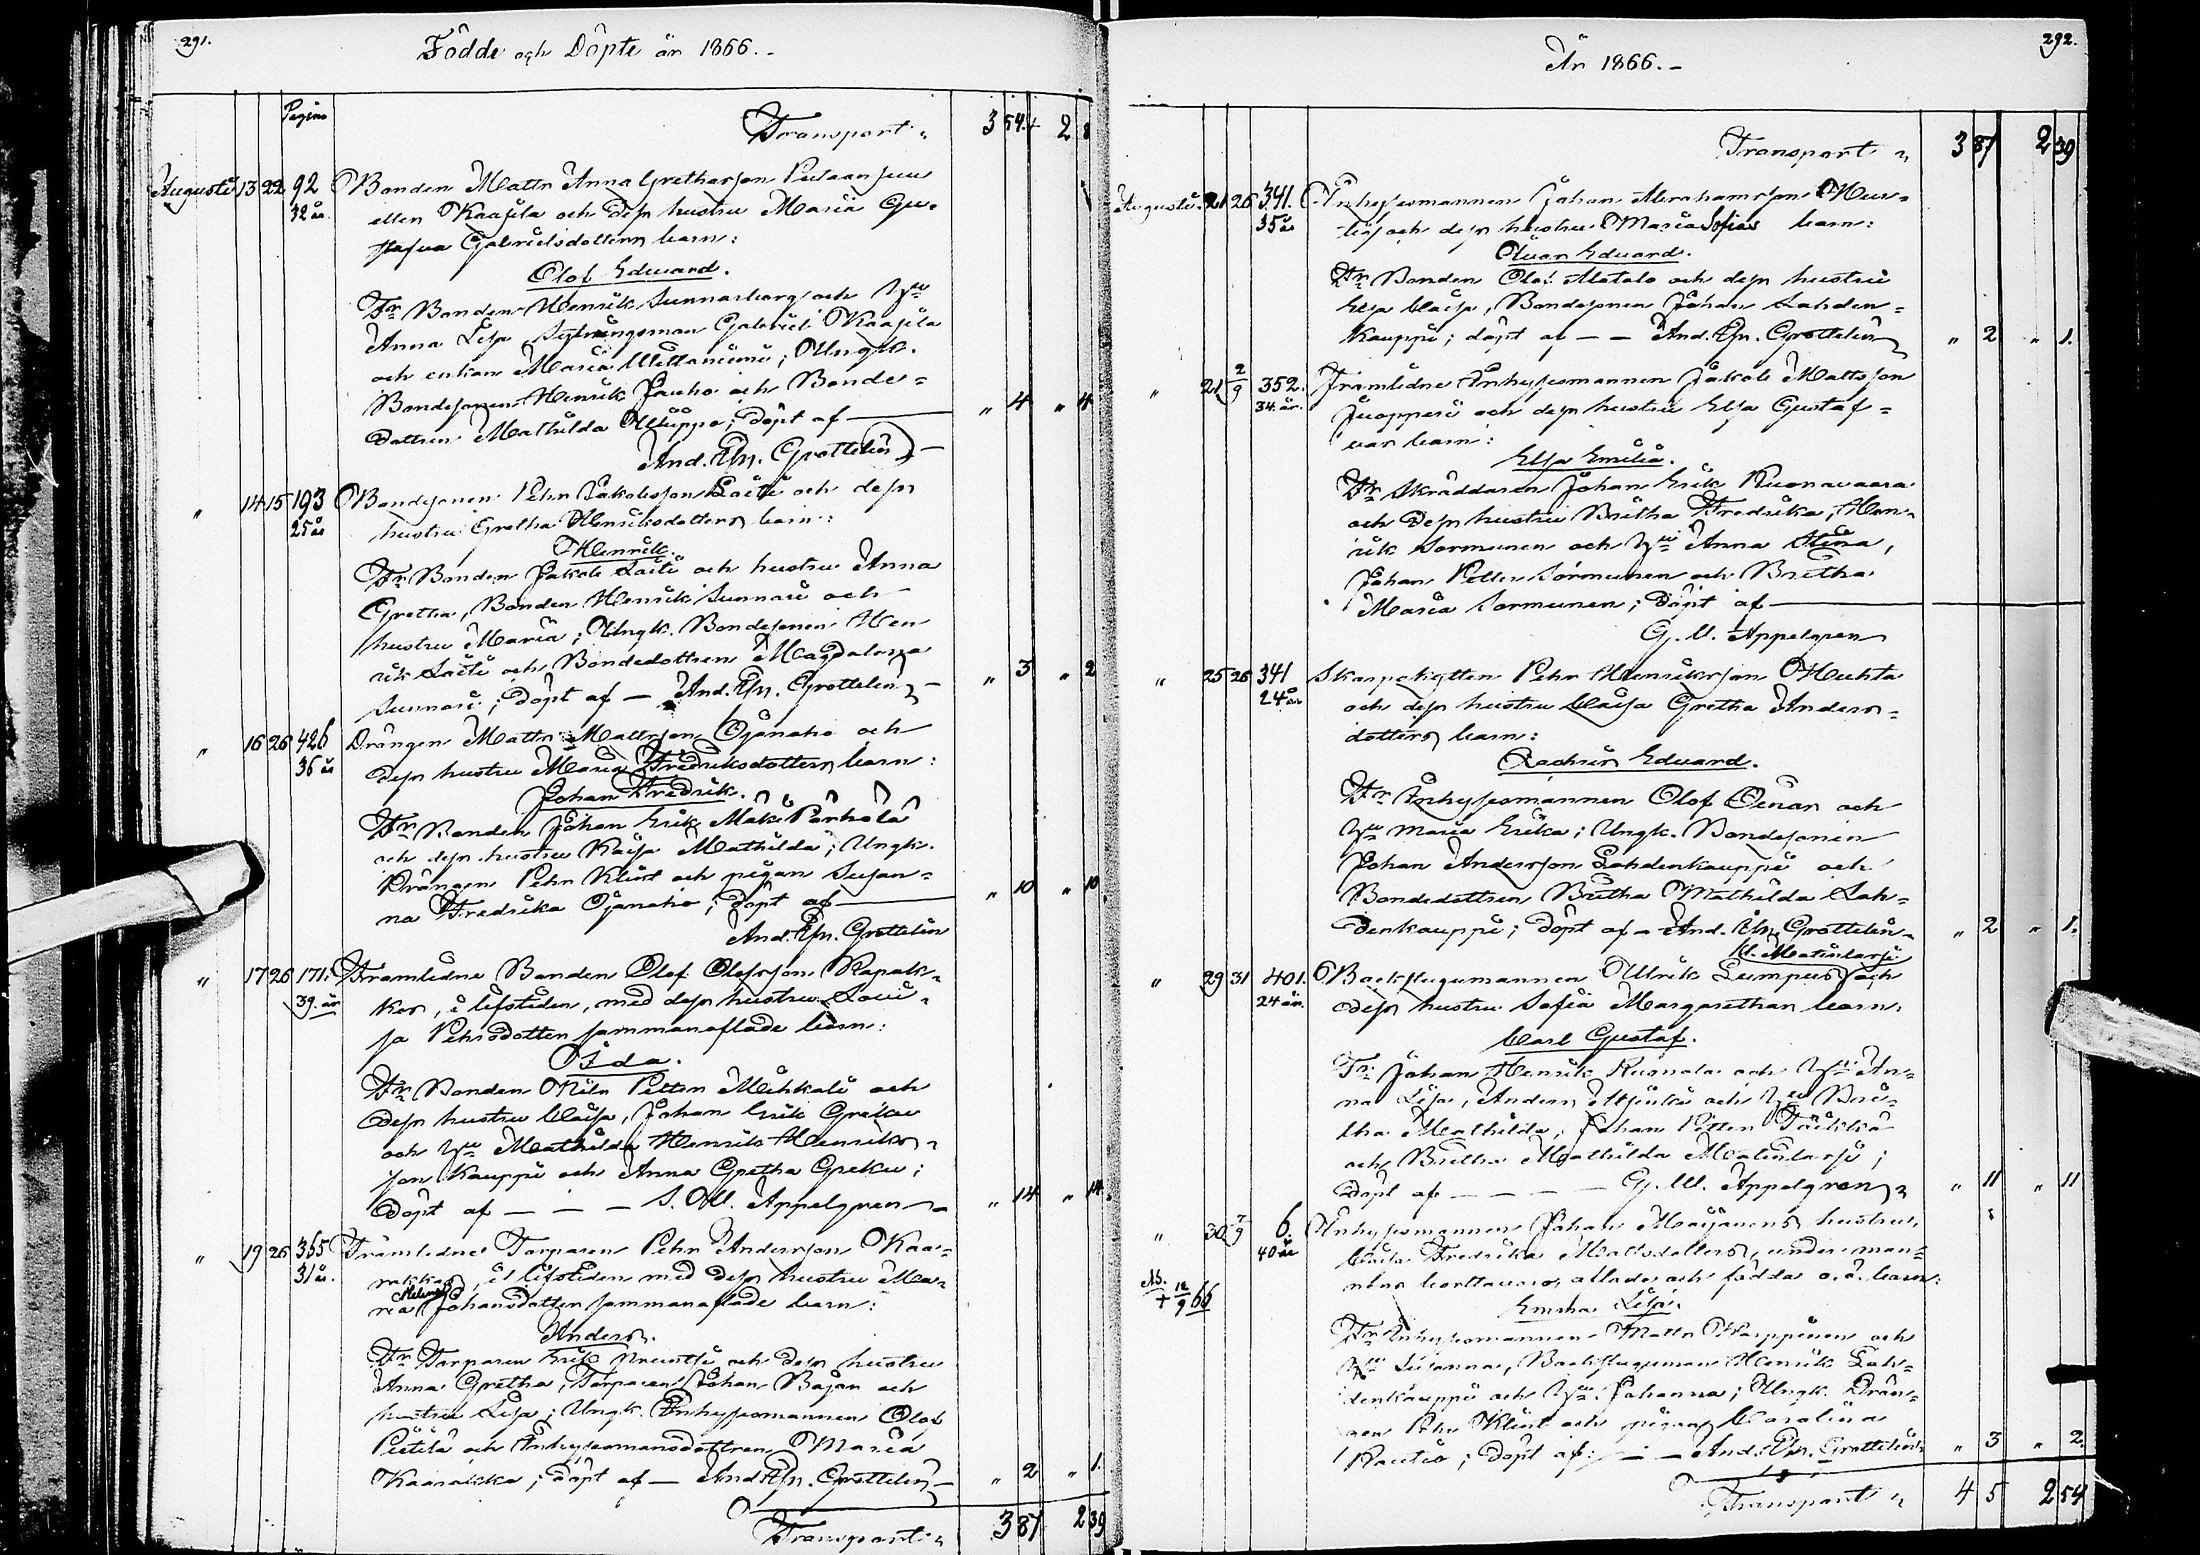 291.
Födde och Döpte år 1866.-
Pagina
Transport " 3 54 2
Augusti 13 22 92 Bonden Matts Anna Grethasson
32 år. eller Kaasila och dess hustru Maria Gu-
stafva Gabrielsdotters barn:
Olof Edward.
Fr Bonden Henrik Sunnarborg och Hu
Anna Lisa Gabriel Kaasila
och enkan Maria Mettaniemi; Ungk.
Bondesonen Henrik Jauho och Bonde-
dottren Mathilda döpt af — " 4 " 4
And. Efr. Grottelin -
" 14 15 193 Bondesonen Pehr Jakobsson Laiti och dess
25 år hustru Gretha Henriksdotters barn:
Henrik.
Fr Bonden Jakob Laiti och hustru Anna
Gretha, Bonden Henrik Sunnari och
hustru Maria; Ungk. Bondesonen Hen
rik Laiti och Bondedottren Magdalena
Sunnari; döpt af — And. Efr. Grottelin - " 3 " 2
" 16 26 426 Drängen Matts Mattsson Ojanaho och
36 år dess hustru Maria Fredriksdotters barn:
Johan Fredrik.
Fr Bonden Johan Erik Mäki Pörhölä
och dess hustru Kaisa Mathilda; Ungk.
Drängen Pehr Klint och pigan Susan-
na Fredrika Ojanaho; döpt af — " 10 " 10
And. Efr. Grottelin
" 17 26 171. Framledne Bonden Olof Olofsson Rapak-
39. år kos, i lifstiden, med dess hustru Lovi-
sa Pehrsdotter sammanaflade barn:
Ida.
Fr Bonden Nils Petter Mihkali och
dess hustru Caisa, Johan Erik Greku
och Hu Mathilda Henrik Henriks-
son Kauppi och Anna Gretha Greku;
Döpt af — — — Appelgren - " 14 " 14
" 19 26 365 Framledne Torparen Pehr Andersson Kaa-
31 år. rakkas, i lifstiden med dess hustru Ma-
Helena
ria Johansdotter sammanaflade barn:
Anders.
Fr Torparen Erik och dess hustru
Anna Gretha, Torparen Johan Bajar och
hustru Lisa; Ungk. Inhysesmannen Olof
Pietilä och Inhysesmansdottren Maria
Kaarakka; döpt af — And. Efr. Grottelin - " 2 " 1.
Transport " 3 87 2 39
292.
År 1866.-
Transport " 3 87 2 39
Augusti. 21 26 341. Inhysesmannen Johan Abrahamsson
35 år och dess hustru Maria Sofias barn:
Edvard.
Fr Bonden Olof Alatalo och dess hustru
Elsa Caisa, Bondesonen Johan Lahden-
kauppi; döpt af — — And. Efr. Grottelin " 2 " 1.
" 21 2/9 352. Framledne Inhysesmannen Jakob Mattsson
34 år. Juopperi och dess hustru Elsa Gustaf-
vas barn:
Elsa Emilia.
Fr Skräddaren Johan Erik Kuonavaara
och dess hustru Britha Fredrika, Hen-
rik Sormunen och Hu Anna Stina,
Johan Petter Sormunen och Britha
Maria Sormunen; Döpt af —
G. M. Appelgren
" 25 26 341 Skarpskytten Pehr Henriksson Huhta
24 år och dess hustru Caisa Gretha Anders-
dotters barn:
Zachris Edvard.
Fr Inhysesmannen Olof och
Hu Maria Erika; Ungk. Bondesonen
Johan Andersson Lahdenkauppi och
Bondedottren Britha Mathilda Lah-
denkauppi; Döpt af - And. Efr. Grottelin - " 2 " 1.
" 29 31 401. Backstugumannen Ulrik Lumpus och
24 år. dess hustru Sofia Margarethas barn.
Carl Gustaf.
Fr Johan Henrik och Hu An-
na Lisa, Anders och Hu Bri-
tha Mathilda, Johan Petter
och Britha Mathilda Matinlassi;
Döpt af — — — — G. M. Appelgren " 11 " 11
" 30 7/9 6. Inhysesmannen Johan hustru
40 år Caisa Fredrika Mattsdotters, under man-
nens borttavaro, aflade och födda o.ä. barn:
NB.
+ 12/9 66
Emma Lisa.
Fr Inhysesmannen Matts Karppinen och
Hu Susanna, Backstuguman Henrik Lah-
denkauppi och Hu Johanna; Ungk. Drän-
gen Pehr Klint och pigan Carolina
Rautio; Döpt af: — — And. Efr. Grottelin " 3 " 2.
Transport " 4 5 2 54